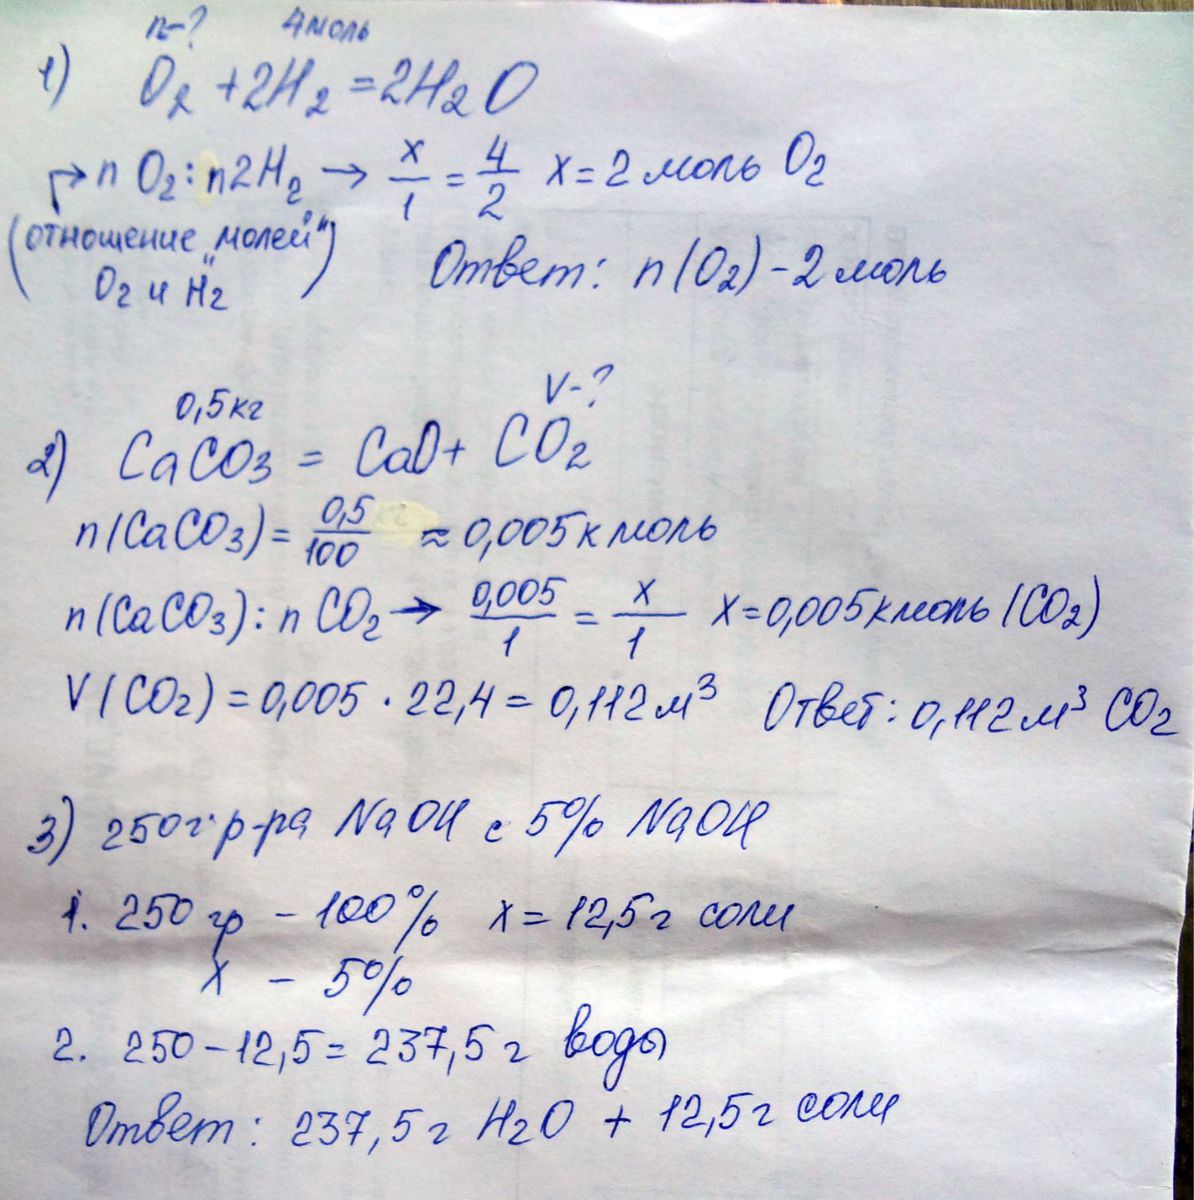 n-? 4 моль
1) O2 + 2H2 = 2H2O
→ n O2 : n2H2 → x/1 = 4/2 x = 2 моль O2
(отношение „молей“
O2 и H2)
Ответ: n(O2) - 2 моль
0,5 кг V-?
2) CaCO3 = CaO + CO2
n(CaCO3) = 0,5/100 ≈ 0,005 кмоль
n(CaCO3) : n CO2 → 0,005/1 = x/1 x = 0,005 кмоль (CO2)
V(CO2) = 0,005 · 22,4 = 0,112 м³ Ответ: 0,112 м³ CO2
3) 250 г р-ра NaOH с 5% NaOH
1. 250 гр - 100% x = 12,5 г соли
x - 5%
2. 250 - 12,5 = 237,5 г воды
Ответ: 237,5 г H2O + 12,5 г соли